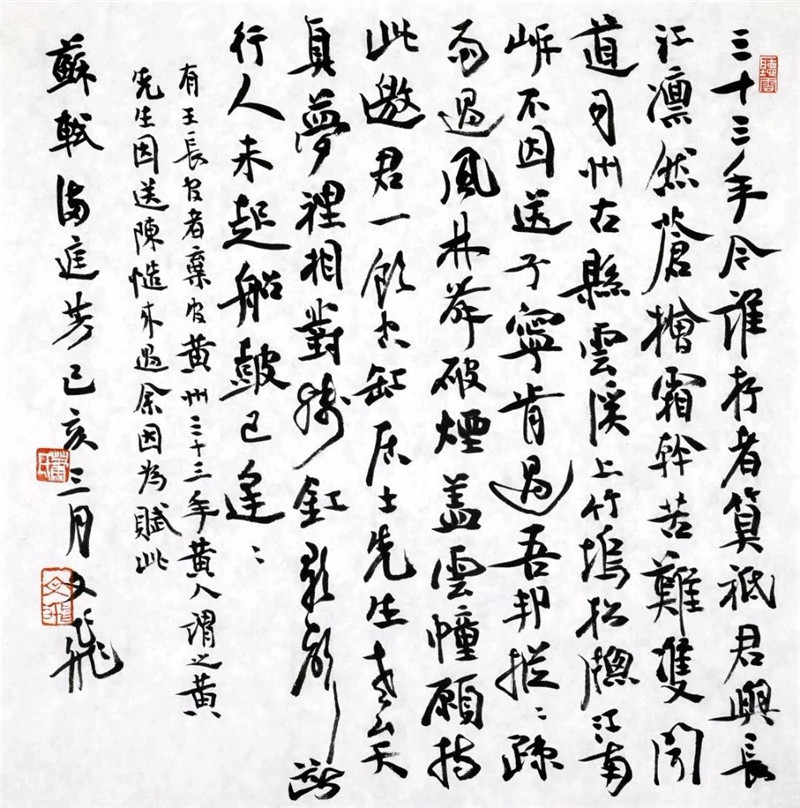 三十三年今誰存者算衹君與長
江凛然蒼檜霜幹苦難雙聞
道司州古縣雲溪上竹塢松牕江南
岸不因送子寧肯過吾邦摐〻疎
雨過風林舞破煙蓋雲幢願持
此邀君一飲空缸居士先生老矣
真夢裡相對殘釭歌聲斷
行人未起船鼓已逢〻
有王長官者棄官黃州三十三年黃人謂之黃
先生因送陳慥來過余因為賦此
蘇軾滿庭芳己亥三月文飛
文飛